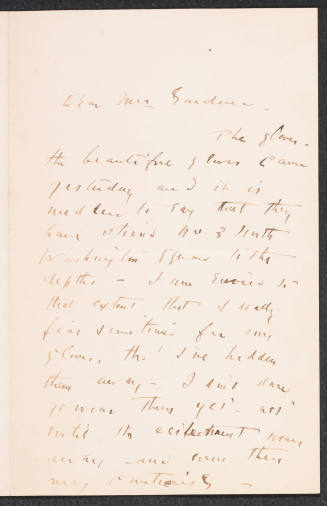 Dear Mrs Gardner -
The gloves -
the beautiful gloves came
yesterday and it is
needless to say that they
have stirred No 3 North
Washington Square to the
depths - I am envied to
that extent that I really
fear sometimes for my
gloves, tho' I've hidden
them away - I don't dare
to wear them yet - not
until the excitement wears
away - and even then
very cautiously -